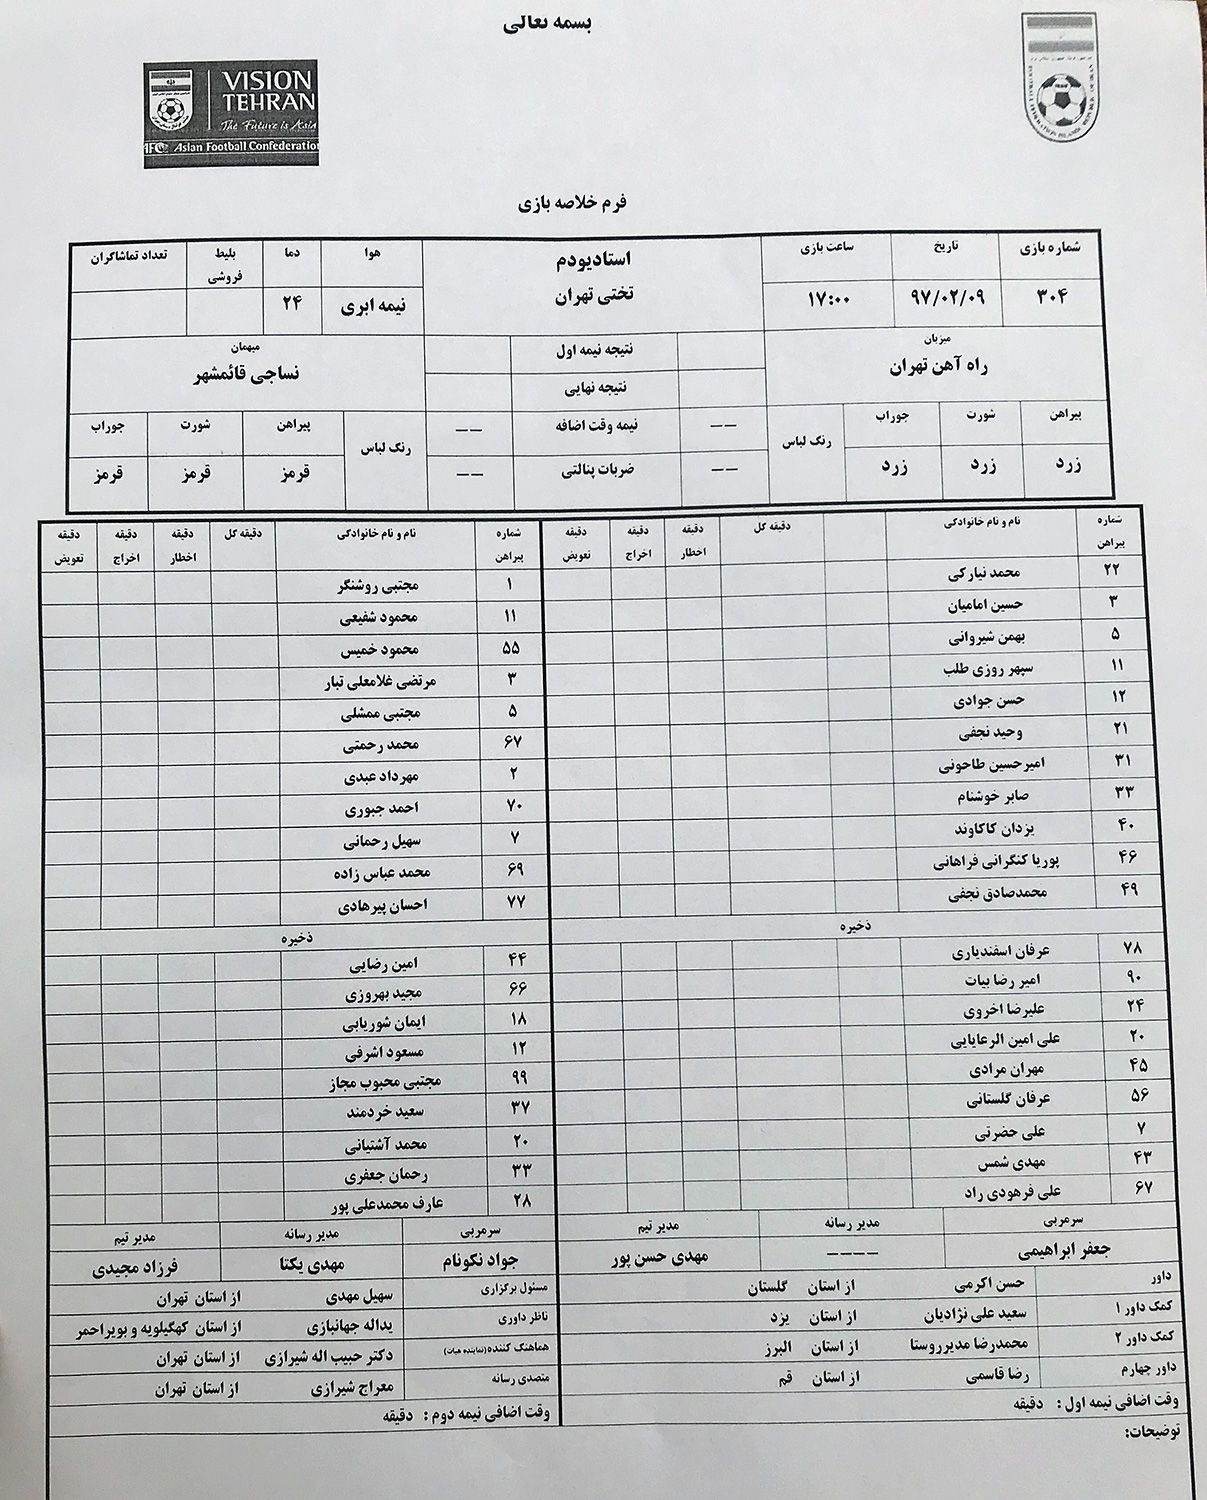 بسمه تعالی
VISION
TEHRAN
The Future is Asia
AFC Asian Football Confederation
فرم خلاصه بازی
شماره بازی تاریخ ساعت بازی استادیودم هوا دما بلیط فروشی تعداد تماشاگران
۳۰۴ ۹۷/۰۲/۰۹ ۱۷:۰۰ تختی تهران نیمه ابری ۲۴
میزبان نتیجه نیمه اول میهمان
راه آهن تهران نتیجه نهایی نساجی قائمشهر
پیراهن شورت جوراب رنگ لباس -- نیمه وقت اضافه -- رنگ لباس پیراهن شورت جوراب
زرد زرد زرد -- ضربات پنالتی -- قرمز قرمز قرمز
شماره پیراهن نام و نام خانوادگی دقیقه کل دقیقه اخطار دقیقه اخراج دقیقه تعویض شماره پیراهن نام و نام خانوادگی دقیقه کل دقیقه اخطار دقیقه اخراج دقیقه تعویض
۲۲ محمد نیارکی ۱ مجتبی روشنگر
۳ حسین امامیان ۱۱ محمود شفیعی
۵ بهمن شیروانی ۵۵ محمود خمیس
۱۱ سپهر روزی طلب ۳ مرتضی غلامعلی تبار
۱۲ حسن جوادی ۵ مجتبی ممشلی
۲۱ وحید نجفی ۶۷ محمد رحمتی
۳۱ امیرحسین طاحونی ۲ مهرداد عبدی
۳۳ صابر خوشنام ۷۰ احمد جبوری
۴۰ یزدان کاکاوند ۷ سهیل رحمانی
۴۶ پوریا کنگرانی فراهانی ۶۹ محمد عباس زاده
۴۹ محمدصادق نجفی ۷۷ احسان پیرهادی
ذخیره ذخیره
۷۸ عرفان اسفندیاری ۴۴ امین رضایی
۹۰ امیر رضا بیات ۶۶ مجید بهروزی
۲۴ علیرضا اخروی ۱۸ ایمان شوریابی
۲۰ علی امین الرعایایی ۱۲ مسعود اشرفی
۴۵ مهران مرادی ۹۹ مجتبی محبوب مجاز
۵۶ عرفان گلستانی ۳۷ سعید خردمند
۷ علی حضرتی ۲۰ محمد آشتیانی
۴۳ مهدی شمس ۳۳ رحمان جعفری
۶۷ علی فرهودی راد ۲۸ عارف محمدعلی پور
سرمربی مدیر رسانه مدیر تیم سرمربی مدیر رسانه مدیر تیم
جعفر ابراهیمی ---- مهدی حسن پور جواد نکونام مهدی یکتا فرزاد مجیدی
داور حسن اکرمی از استان گلستان مسئول برگزاری سهیل مهدی از استان تهران
کمک داور ۱ سعید علی نژادیان از استان یزد ناظر داوری یداله جهانبازی از استان کهگیلویه و بویراحمر
کمک داور ۲ محمدرضا مدیرروستا از استان البرز هماهنگ کننده(نماینده هیات) دکتر حبیب اله شیرازی از استان تهران
داور چهارم رضا قاسمی از استان قم متصدی رسانه معراج شیرازی از استان تهران
وقت اضافی نیمه اول : دقیقه وقت اضافی نیمه دوم : دقیقه
توضیحات: